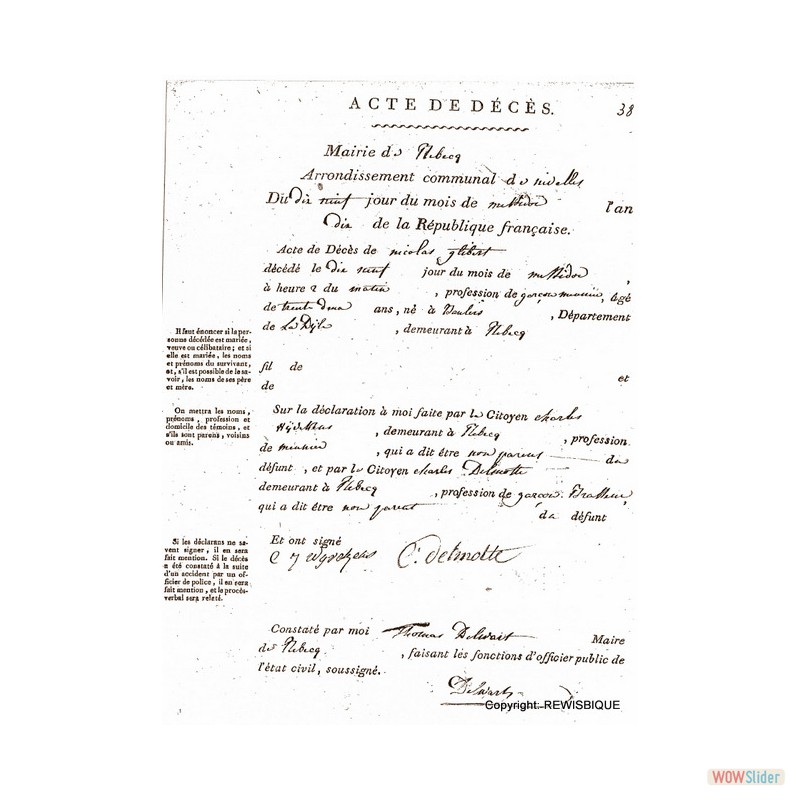 ACTE DE DÉCÈS. 38
Mairie de Rebecq
Arrondissement communal de nivelles
Du dix neuf jour du mois de messidor l'an
dix de la République française.
Acte de Décès de nicolas gilbert
décédé le dix neuf jour du mois de messidor,
à heure 2 du matin, profession de garçon meunier, âgé
de trente deux ans, né à, Département
de La Dyle, demeurant à Rebecq
Il faut énoncer si la per-
sonne décédée est mariée,
veuve ou célibataire; et si
elle est mariée, les noms
et prénoms du survivant,
et, s'il est possible de le sa-
voir, les noms de ses père
et mère.
fil de
et
de
On mettra les noms,
prénoms, profession et
domicile des témoins, et
s'ils sont parens, voisins
ou amis.
Sur la déclaration à moi faite par le Citoyen charles
, demeurant à Rebecq, profession
de meunier, qui a dit être non parent du
défunt, et par le Citoyen charles Delmotte
demeurant à Rebecq, profession de garçon Brasseur,
qui a dit être non parent du défunt
Si les déclarans ne sa-
vent signer, il en sera
fait mention. Si le décès
a été constaté à la suite
d'un accident par un of-
ficier de police, il en sera
fait mention, et le procès-
verbal sera relaté.
Et ont signé
C. delmotte
Constaté par moi Thomas Delwart Maire
de Rebecq, faisant les fonctions d'officier public de
l'état civil, soussigné.
Delwart
Copyright: REWISBIQUE
WOWSlider